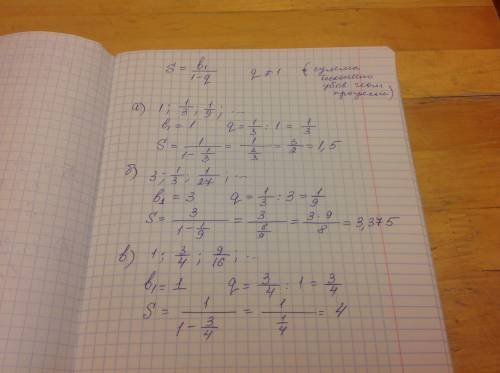 S = b₁/(1-q) q ≠ 1 (сумма
бесконечно
убыв геом
прогрессии)
а) 1; 1/3; 1/9; ...
b₁ = 1 q = 1/3 : 1 = 1/3
S = 1/(1 - 1/3) = 1/(2/3) = 3/2 = 1,5
б) 3; 1/3; 1/27; ...
b₁ = 3 q = 1/3 : 3 = 1/9
S = 3/(1 - 1/9) = 3/(8/9) = (3·9)/8 = 3,375
в) 1; 3/4; 9/16; ...
b₁ = 1 q = 3/4 : 1 = 3/4
S = 1/(1 - 3/4) = 1/(1/4) = 4